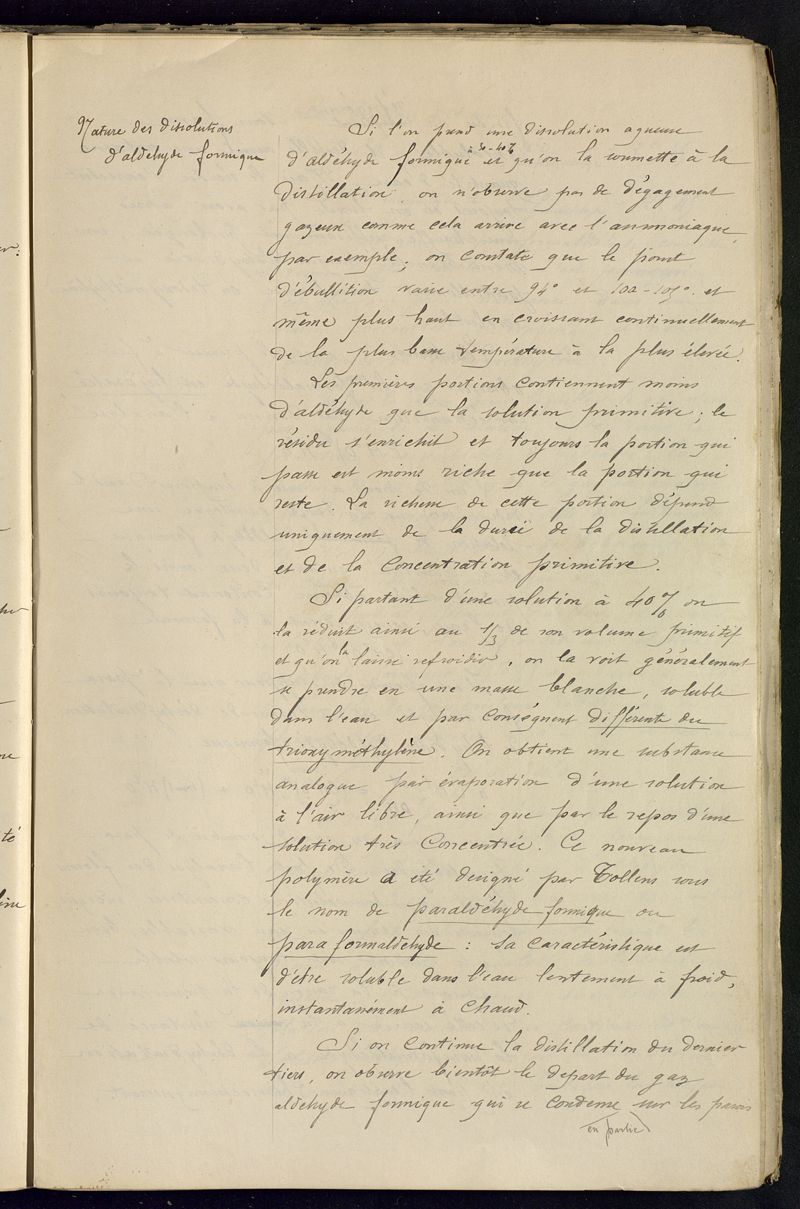 Nature des dissolutions
d'aldéhyde formique
Si l'on prend une dissolution aqueuse
à 30-40%
d'aldéhyde formique et qu'on la soumette à la
distillation on n'observe pas de dégagement
gazeux comme cela arrive avec l'ammoniaque,
par exemple ; on constate que le point
d'ébullition varie entre 94° et 102-105° et
même plus haut en croissant continuellement
de la plus basse température à la plus élevée.
Les premières portions contiennent moins
d'aldéhyde que la solution primitive ; le
résidu s'enrichit et toujours la portion qui
passe est moins riche que la portion qui
reste. La richesse de cette portion dépend
uniquement de la durée de la distillation
et de la concentration primitive.
Si partant d'une solution à 40% on
la réduit ainsi au 1/3 de son volume primitif
et qu'on la laisse refroidir, on la voit généralement
se prendre en une masse blanche, soluble
dans l'eau et par conséquent différente du
trioxyméthylène. On obtient une substance
analogue par évaporation d'une solution
à l'air libre, ainsi que par le repos d'une
solution très concentrée. Ce nouveau
polymère a été désigné par Tollens sous
le nom de paraldéhyde formique ou
paraformaldehyde : sa caractéristique est
d'être soluble dans l'eau lentement à froid,
instantanément à chaud.
Si on continue la distillation du dernier
tiers, on observe bientôt le départ du gaz
aldehyde formique qui se condense sur les parois
en partie